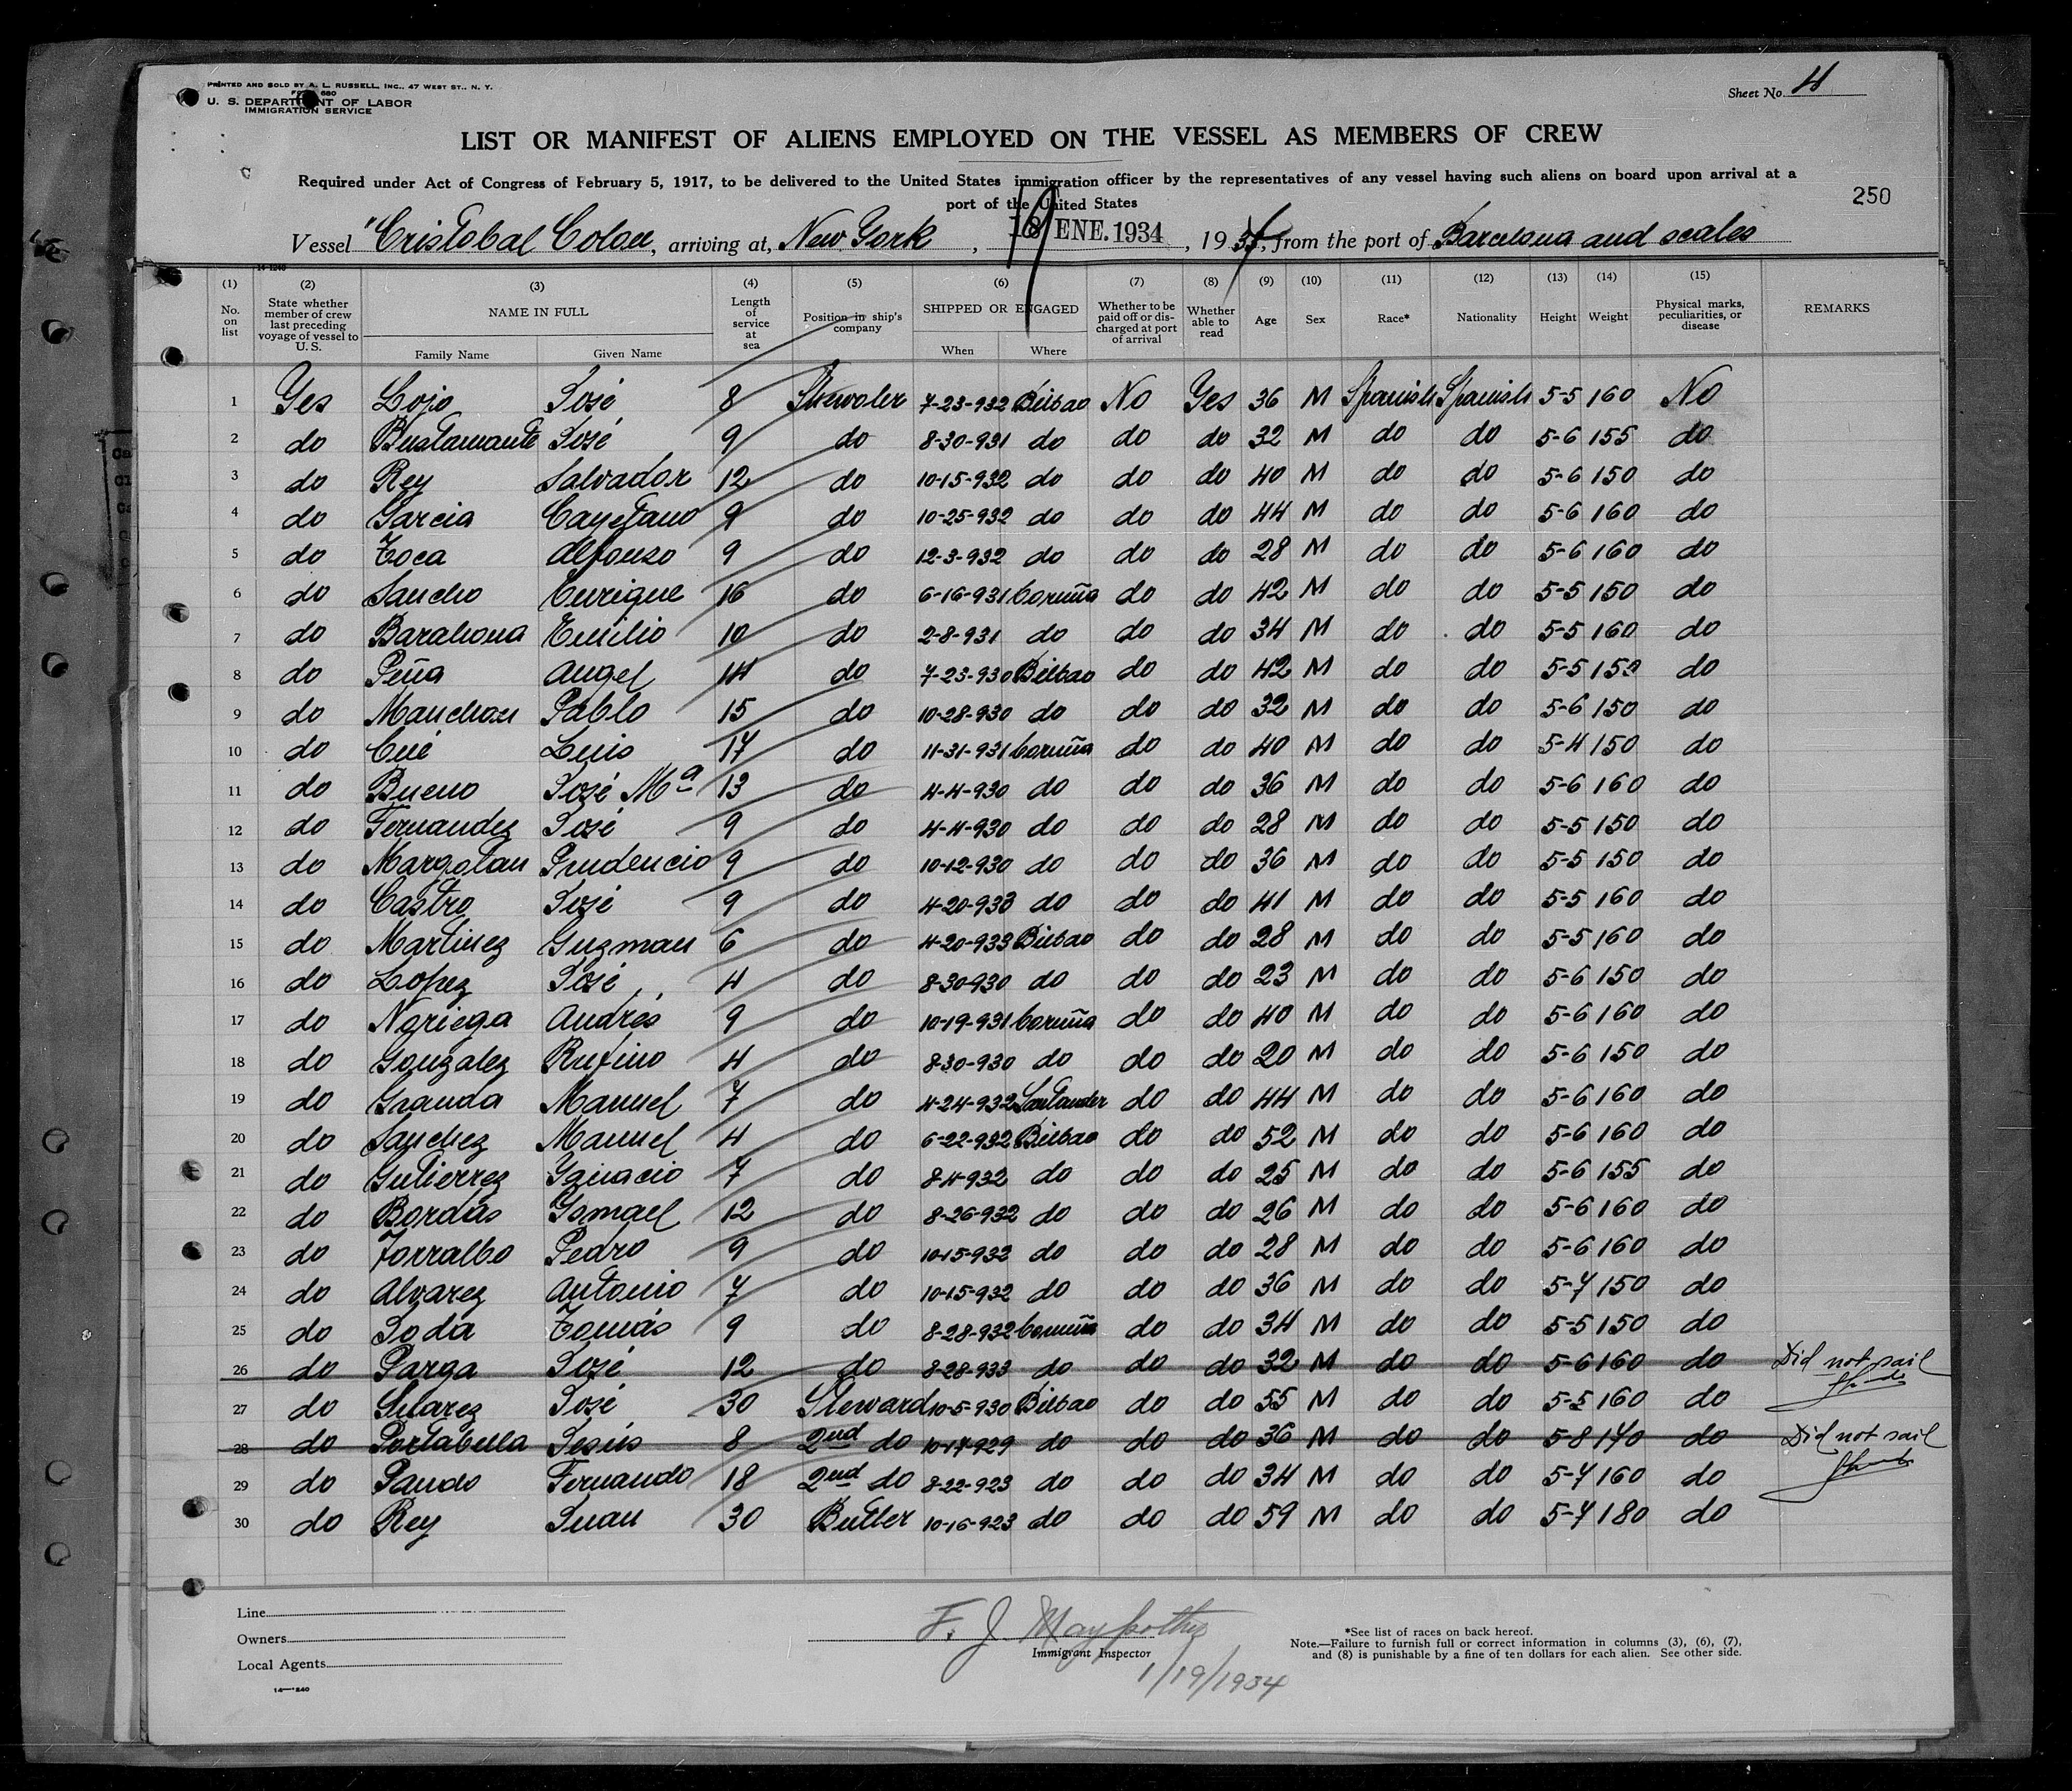 PRINTED AND SOLD BY A. L. RUSSELL, INC., 47 WEST ST., N. Y.
680
U. S. DEPARTMENT OF LABOR
IMMIGRATION SERVICE
Sheet No. 4
LIST OR MANIFEST OF ALIENS EMPLOYED ON THE VESSEL AS MEMBERS OF CREW
Required under Act of Congress of February 5, 1917, to be delivered to the United States immigration officer by the representatives of any vessel having such aliens on board upon arrival at a
port of the United States
250
Vessel "Cristobal Colon, arriving at, New York, 19 ENE. 1934, 1934, from the port of Barcelona and scales
14-1240
(1) (2) (3) (4) (5) (6) (7) (8) (9) (10) (11) (12) (13) (14) (15)
No. on list State whether member of crew last preceding voyage of vessel to U. S. NAME IN FULL Family Name Given Name Length of service at sea Position in ship's company SHIPPED OR ENGAGED When Where Whether to be paid off or discharged at port of arrival Whether able to read Age Sex Race* Nationality Height Weight Physical marks, peculiarities, or disease REMARKS
1 Yes Lojo José 8 7-23-932 Bilbao No Yes 36 M Spanish Spanish 5-5 160 No
2 do Bustamante José 9 do 8-30-931 do do do 32 M do do 5-6 155 do
3 do Rey Salvador 12 do 10-15-932 do do do 40 M do do 5-6 150 do
4 do Garcia Cayetano 9 do 10-25-932 do do do 44 M do do 5-6 160 do
5 do Toca Alfonso 9 do 12-3-932 do do do 28 M do do 5-6 160 do
6 do Sancho Enrique 16 do 6-16-931 Coruña do do 42 M do do 5-5 150 do
7 do Barahona Emilio 10 do 2-8-931 do do do 34 M do do 5-5 160 do
8 do Peña Angel 14 do 7-23-930 Bilbao do do 42 M do do 5-5 150 do
9 do Manchon Pablo 15 do 10-28-930 do do do 32 M do do 5-6 150 do
10 do Cué Luis 17 do 11-31-931 Coruña do do 40 M do do 5-4 150 do
11 do Bueno José Mª 13 do 4-4-930 do do do 36 M do do 5-6 160 do
12 do Fernandez José 9 do 4-4-930 do do do 28 M do do 5-5 150 do
13 do Margolan Prudencio 9 do 10-12-930 do do do 36 M do do 5-5 150 do
14 do Castro José 9 do 4-20-933 do do do 41 M do do 5-5 160 do
15 do Martinez Guzman 6 do 4-20-933 Bilbao do do 28 M do do 5-5 160 do
16 do Lopez José 4 do 8-30-930 do do do 23 M do do 5-6 150 do
17 do Noriega Andrés 9 do 10-19-931 Coruña do do 40 M do do 5-6 160 do
18 do Gonzalez Rufino 4 do 8-30-930 do do do 20 M do do 5-6 150 do
19 do Granda Manuel 7 do 4-24-932 Santander do do 44 M do do 5-6 160 do
20 do Sanchez Manuel 4 do 6-22-932 Bilbao do do 52 M do do 5-6 160 do
21 do Gutierrez Ignacio 7 do 8-4-932 do do do 25 M do do 5-6 155 do
22 do Bordas Ismael 12 do 8-26-932 do do do 26 M do do 5-6 160 do
23 do Torralbo Pedro 9 do 10-15-932 do do do 28 M do do 5-6 160 do
24 do Alvarez Antonio 7 do 10-15-932 do do do 36 M do do 5-7 150 do
25 do Soda Tomás 9 do 8-28-932 Coruña do do 34 M do do 5-5 150 do
26 do Parga José 12 do 8-28-933 do do do 32 M do do 5-6 160 do Did not sail
27 do Suarez José 30 Steward 10-5-930 Bilbao do do 55 M do do 5-5 160 do
28 do Portabella Jesús 8 2nd do 10-17-929 do do do 36 M do do 5-8 140 do Did not sail
29 do Pando Fernando 18 2nd do 8-22-923 do do do 34 M do do 5-7 160 do
30 do Rey Juan 30 Butler 10-16-923 do do do 59 M do do 5-7 180 do
Line
Owners
Local Agents
14-1240
F. J.
Immigrant Inspector
1/19/1934
*See list of races on back hereof.
Note.—Failure to furnish full or correct information in columns (3), (6), (7),
and (8) is punishable by a fine of ten dollars for each alien. See other side.